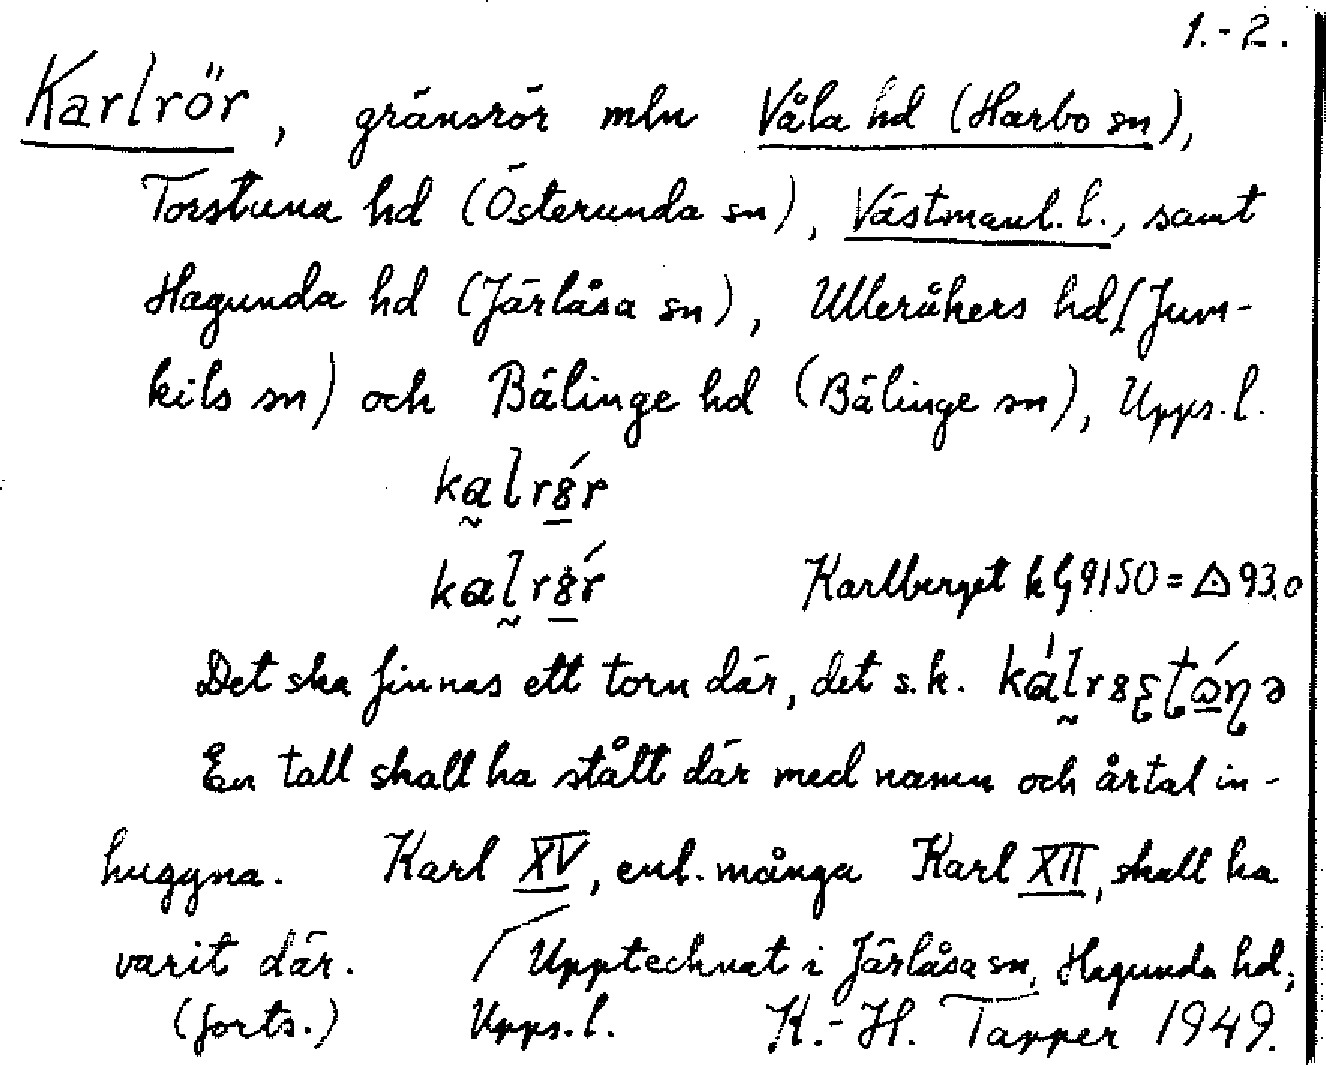 1.-2.
Karlrör, gränsrör mln Våla hd (Harbo sn),
Torstuna hd (Österunda sn), Västmanl. l., samt
Hagunda hd (Järlåsa sn), Ulleråkers hd (Jum-
kils sn) och Bälinge hd (Bälinge sn), Upps. l.
Karlberget 9150 = △ 93.0
Det ska finnas ett torn där, det s.k.
En tall skall ha stått där med namn och årtal in-
huggna. Karl XV, enl. många Karl XII, skall ha
varit där. / Upptecknat i Järlåsa sn, Hagunda hd,
(forts.) Upps. l. K.-H. Tapper 1949.